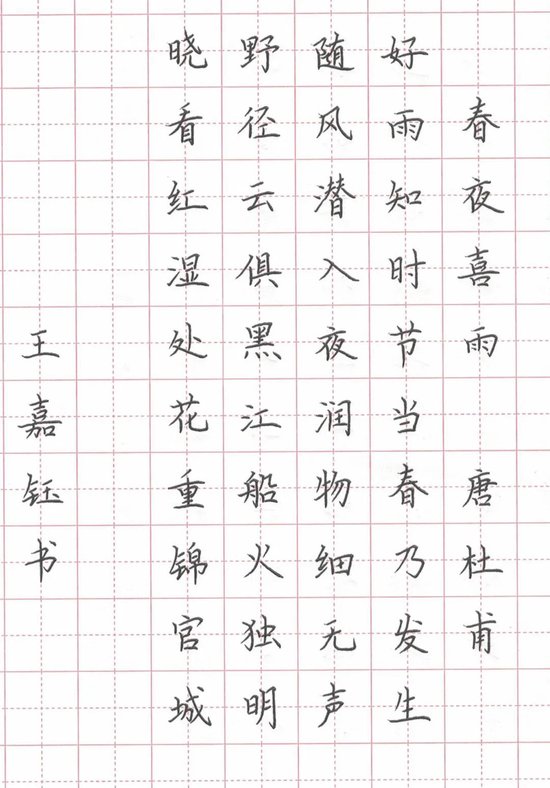 春夜喜雨 唐杜甫
好雨知时节当春乃发生
随风潜入夜润物细无声
野径云俱黑江船火独明
晓看红湿处花重锦官城
王嘉钰书